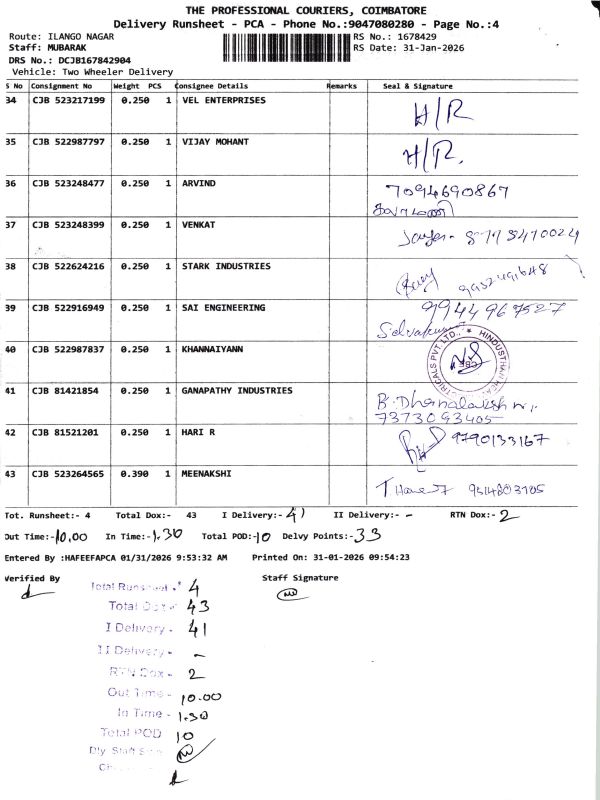 THE PROFESSIONAL COURIERS, COIMBATORE
Delivery Runsheet - PCA - Phone No.:9047080280 - Page No.:4
Route: ILANGO NAGAR RS No.: 1678429
Staff: MUBARAK RS Date: 31-Jan-2026
DRS No.: DCJB167842904
Vehicle: Two Wheeler Delivery
S No Consignment No Weight PCS Consignee Details Remarks Seal & Signature
34 CJB 523217199 0.250 1 VEL ENTERPRISES H/R
35 CJB 522987797 0.250 1 VIJAY MOHANT H/R.
36 CJB 523248477 0.250 1 ARVIND 7094690867
37 CJB 523248399 0.250 1 VENKAT
38 CJB 522624216 0.250 1 STARK INDUSTRIES
39 CJB 522916949 0.250 1 SAI ENGINEERING 9944967527
40 CJB 522987837 0.250 1 KHANNAIYANN
41 CJB 81421854 0.250 1 GANAPATHY INDUSTRIES
7373093405
42 CJB 81521201 0.250 1 HARI R 9790133167
43 CJB 523264565 0.390 1 MEENAKSHI
Tot. Runsheet:- 4 Total Dox:- 43 I Delivery:- 41 II Delivery:- - RTN Dox:- 2
Out Time:-10.00 In Time:-1.30 Total POD:-10 Delvy Points:-33
Entered By :HAFEEFAPCA 01/31/2026 9:53:32 AM Printed On: 31-01-2026 09:54:23
Verified By Staff Signature
Total Runsheet - 4
Total Dox - 43
I Delivery - 41
II Delivery - -
RTN Dox - 2
Out Time - 10.00
In Time - 1.30
Total POD 10
Dly. Staff Sign